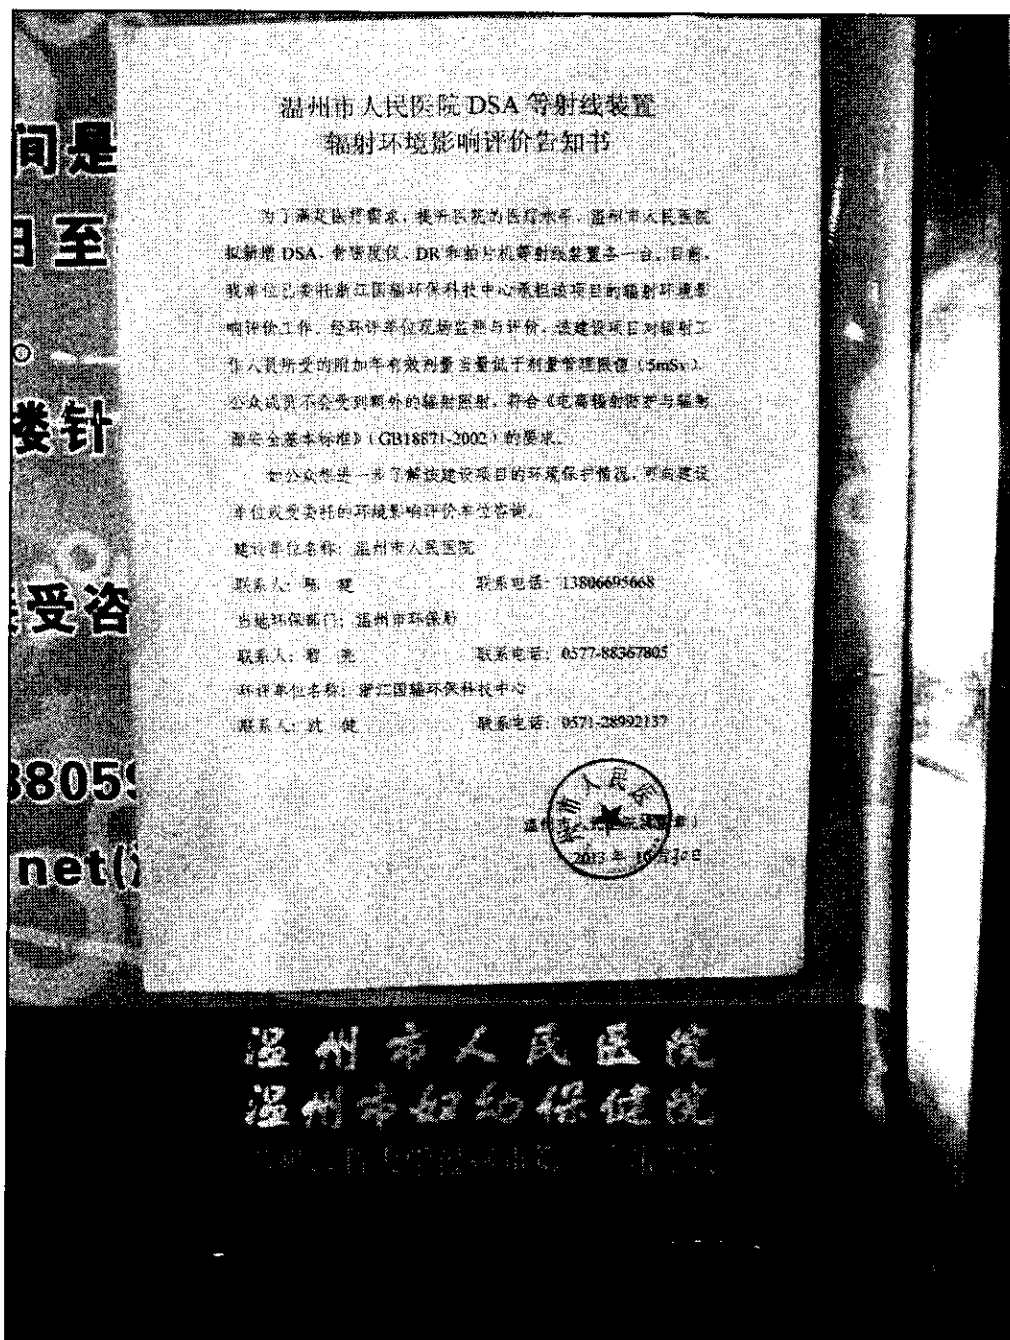 温州市人民医院 DSA 等射线装置
辐射环境影响评价告知书
为了满足医疗需求，提升医院的医疗水平，温州市人民医院
拟新增 DSA、骨密度仪、DR 和拍片机等射线装置各一台。目前，
我单位已委托浙江国辐环保科技中心承担该项目的辐射环境影
响评价工作。经环评单位现场监测与评价，该建设项目对辐射工
作人员所受的附加年有效剂量当量低于剂量管理限值（5mSv）。
公众成员不会受到额外的辐射照射，符合《电离辐射防护与辐射
源安全基本标准》（GB18871-2002）的要求。
如公众想进一步了解该建设项目的环境保护情况，可向建设
单位或受委托的环境影响评价单位咨询。
建设单位名称：温州市人民医院
联系人：陈 健 联系电话：13806695668
当地环保部门：温州市环保局
联系人： 联系电话：0577-88367805
环评单位名称：浙江国辐环保科技中心
联系人：沈 健 联系电话：0571-28992137
2013 年 10月30日
间是
日至
。
楼针
受咨
88059
net(
温州市人民医院
温州市妇幼保健院